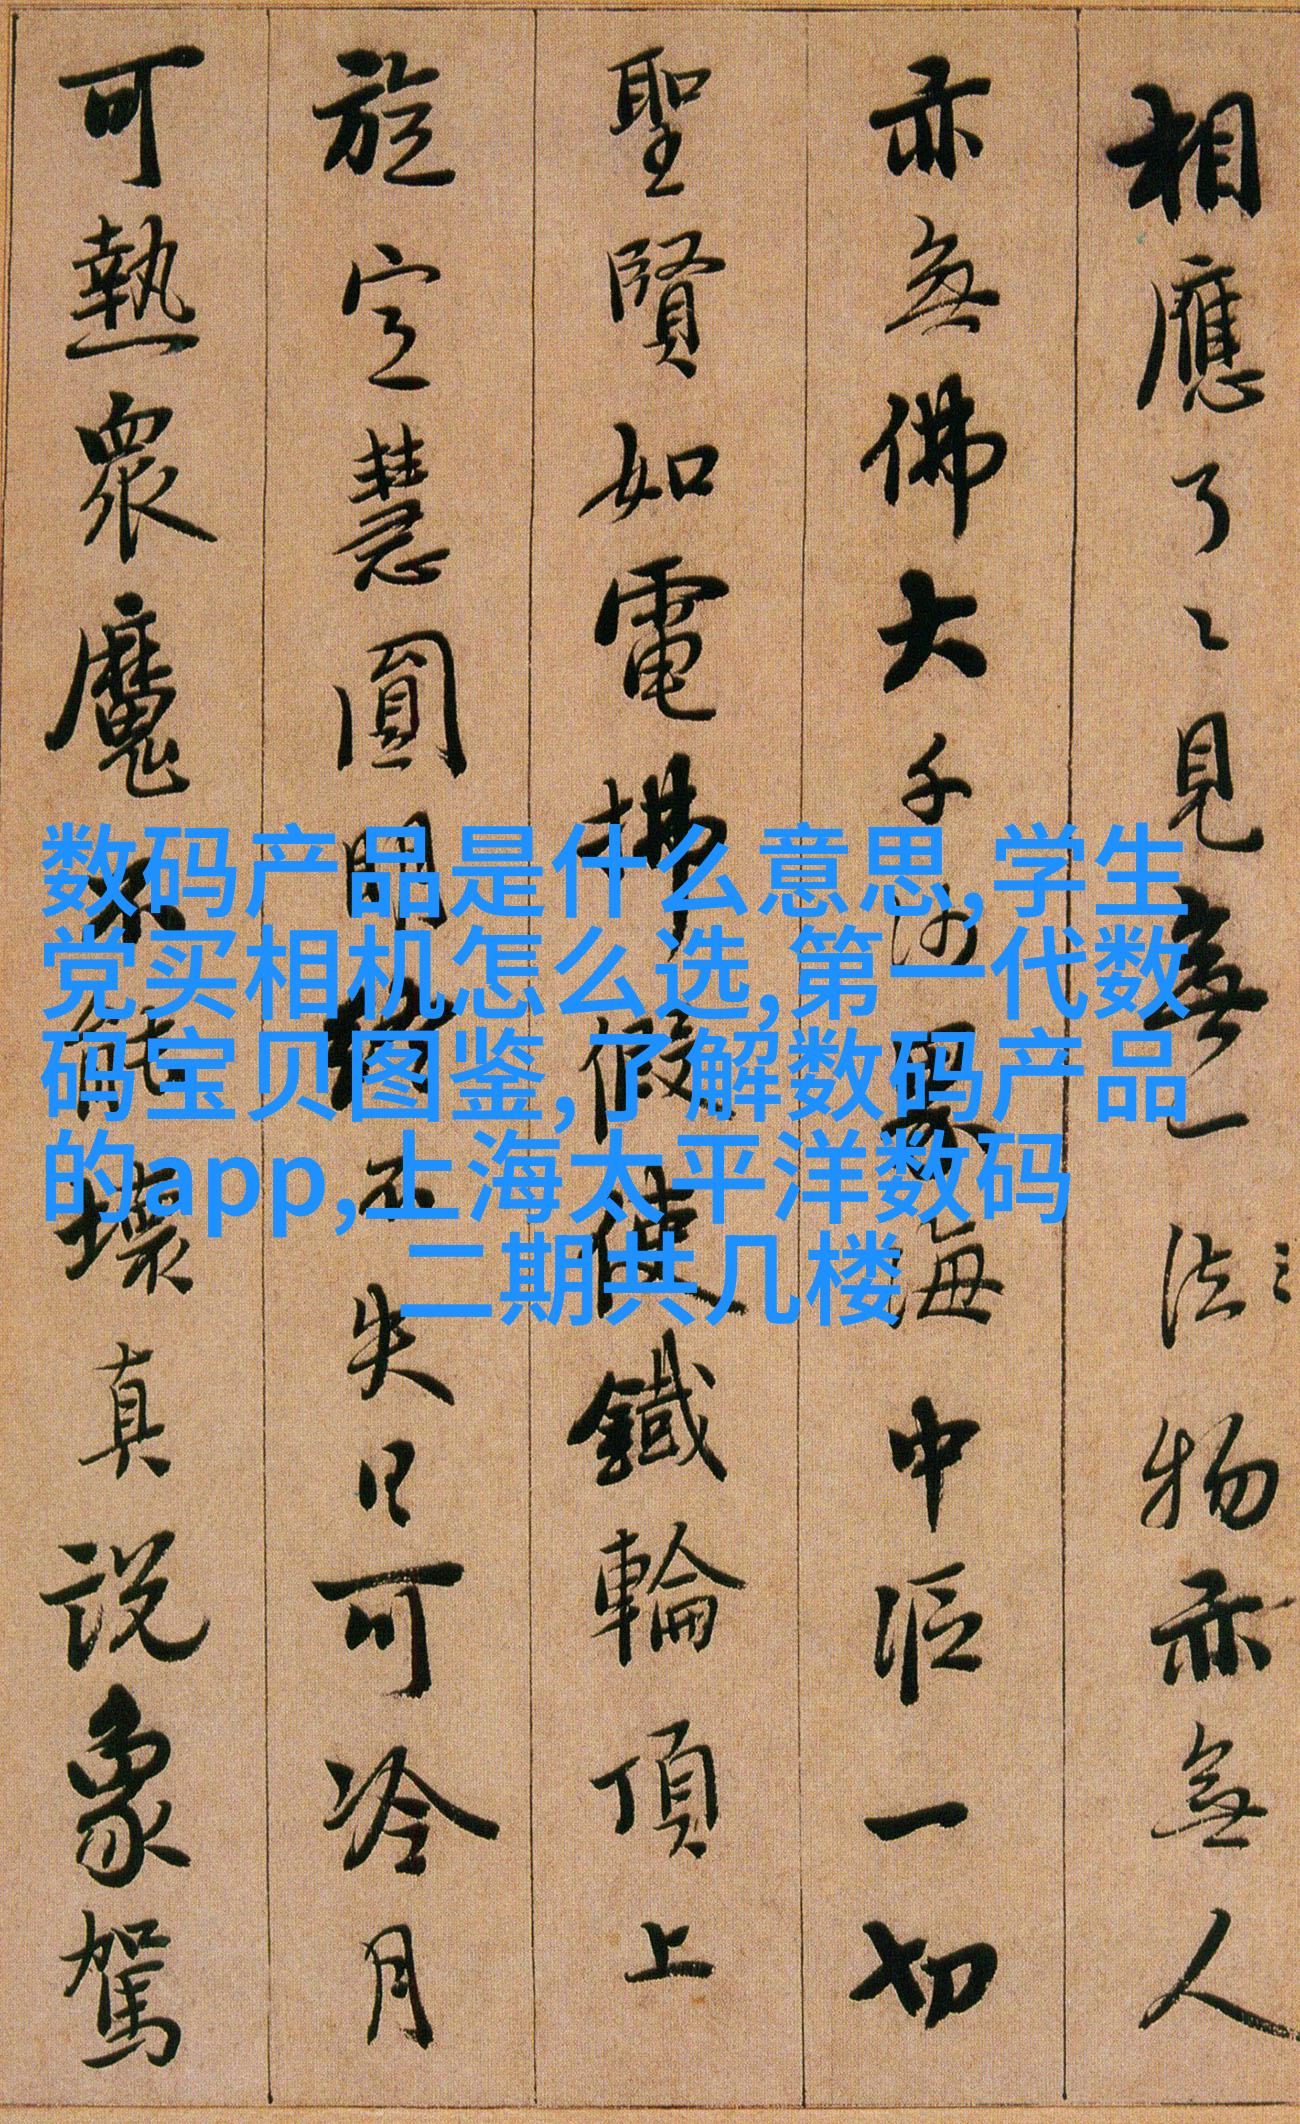 相應了〻見無一法物亦無人
亦無佛大千沙界海中漚一切
聖賢如電拂假使鐵輪頂上
旋定慧圓明終不失日可冷月
可熱眾魔不能壞真說象駕
数码产品是什么意思,学生
党买相机怎么选,第一代数
码宝贝图鉴,了解数码产品
的app,上海太平洋数码
二期共几楼